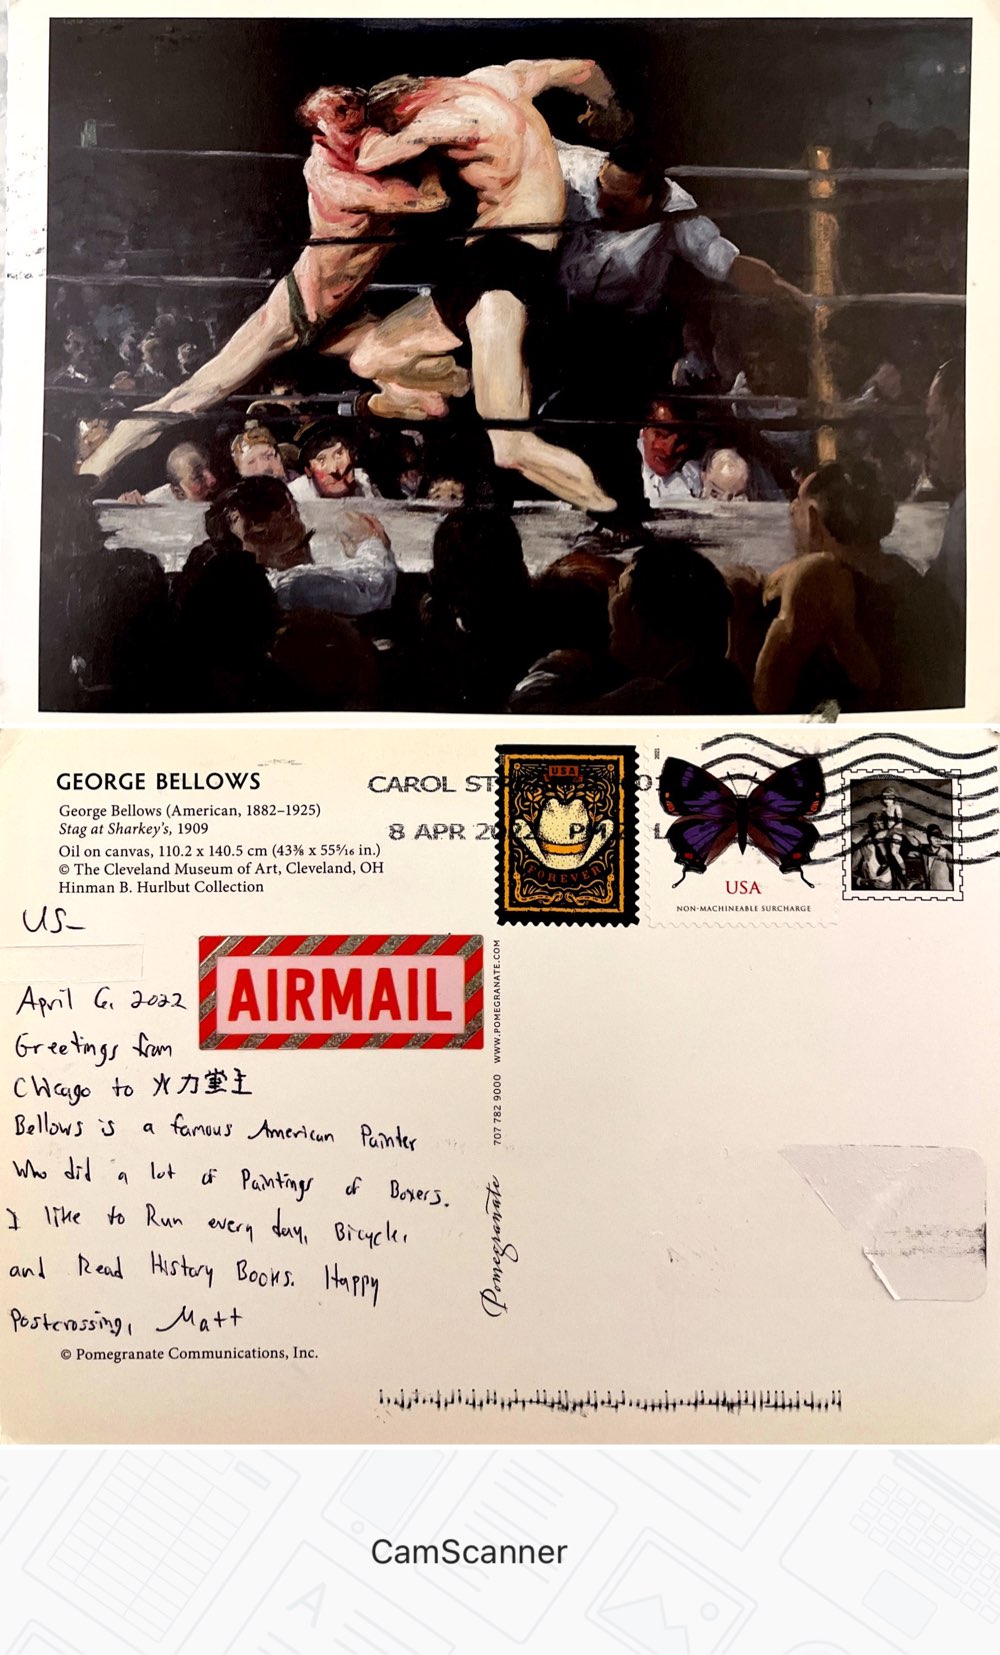 GEORGE BELLOWS
George Bellows (American, 1882–1925)
Stag at Sharkey's, 1909
Oil on canvas, 110.2 x 140.5 cm (43⅜ x 55⁵⁄₁₆ in.)
© The Cleveland Museum of Art, Cleveland, OH
Hinman B. Hurlbut Collection
CAROL ST
8 APR 2022 PM
USA
FOREVER
USA
NON-MACHINEABLE SURCHARGE
US-
AIRMAIL
April 6, 2022
Greetings from
Chicago to 火力堂主
Bellows is a famous American Painter
Who did a lot of Paintings of Boxers.
I like to Run every day, Bicycle,
and Read History Books. Happy
Postcrossing, Matt
© Pomegranate Communications, Inc.
Pomegranate
707 782 9000 WWW.POMEGRANATE.COM
CamScanner